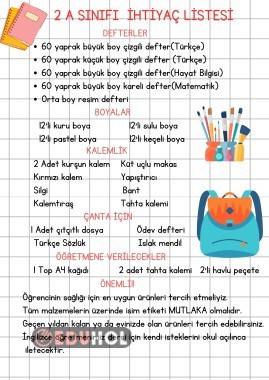 2 A SINIFI İHTİYAÇ LİSTESİ
DEFTERLER
• 60 yaprak büyük boy çizgili defter(Türkçe)
• 60 yaprak küçük boy çizgili defter (Türkçe)
• 60 yaprak büyük boy çizgili defter(Hayat Bilgisi)
• 60 yaprak büyük boy kareli defter(Matematik)
• Orta boy resim defteri
BOYALAR
12'li kuru boya 12'li sulu boya
12'li pastel boya 12'li keçeli boya
KALEMLİK
2 Adet kurşun kalem Küt uçlu makas
Kırmızı kalem Yapıştırıcı
Silgi Bant
Kalemtıraş Tahta kalemi
ÇANTA İÇİN
1 Adet çıtçıtlı dosya Ödev defteri
Türkçe Sözlük Islak mendil
ÖĞRETMENE VERİLECEKLER
1 Top A4 kağıdı 2 adet tahta kalemi 2'li havlu peçete
ÖNEMLİ!
Öğrencinin sağlığı için en uygun ürünleri tercih etmeliyiz.
Tüm malzemelerin üzerinde isim etiketi MUTLAKA olmalıdır.
Geçen yıldan kalan ya da evinizde olan ürünleri tercih edebilirsiniz.
İngilizce öğretmenimiz dersi için kendi isteklerini okul açılınca
iletecektir.
EDUHOL